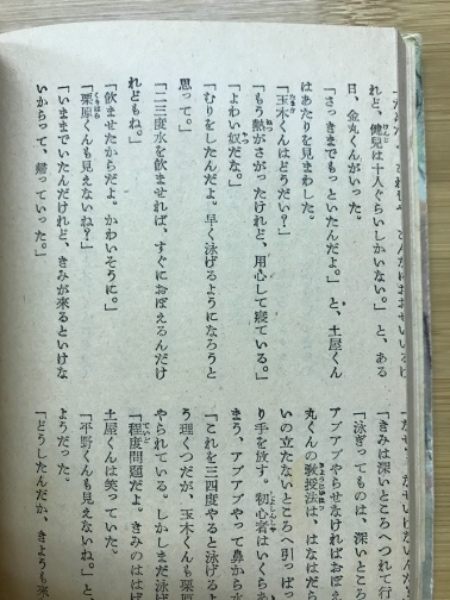 れど、健兒は十人ぐらいしかいない。」と、ある
日、金丸くんがいった。
「さっきまでもっといたんだよ。」と、土屋くん
はあたりを見まわした。
「玉木くんはどうだい?」
「もう熱がさがったけれど、用心して寢ている。」
「よわい奴だな。」
「むりをしたんだよ。早く泳げるようになろうと
思って。」
「二三度水を飲ませれば、すぐにおぼえるんだけ
れどもね。」
「飲ませたからだよ。かわいそうに。」
「栗原くんも見えないね?」
「いままでいたんだけれど、きみが來るといけな
いからって、歸っていった。」
「きみは深いところへつれて行
「泳ぎってものは、深いところ
アプアプやらせなければおぼえ
丸くんの教授法は、はなはだら
いの立たないところへ引っぱっ
り手を放す。初心者はいくらあ
まう、アプアプやって鼻から水
「これを三四度やると泳げるよ
う理くつだが、玉木くんも栗原
やられている。しかしまだ泳げ
「程度問題だよ。きみのははげ
土屋くんは笑っていた。
「平野くんも見えないね。」と、
ようだった。
「どうしたんだか、きょうも來